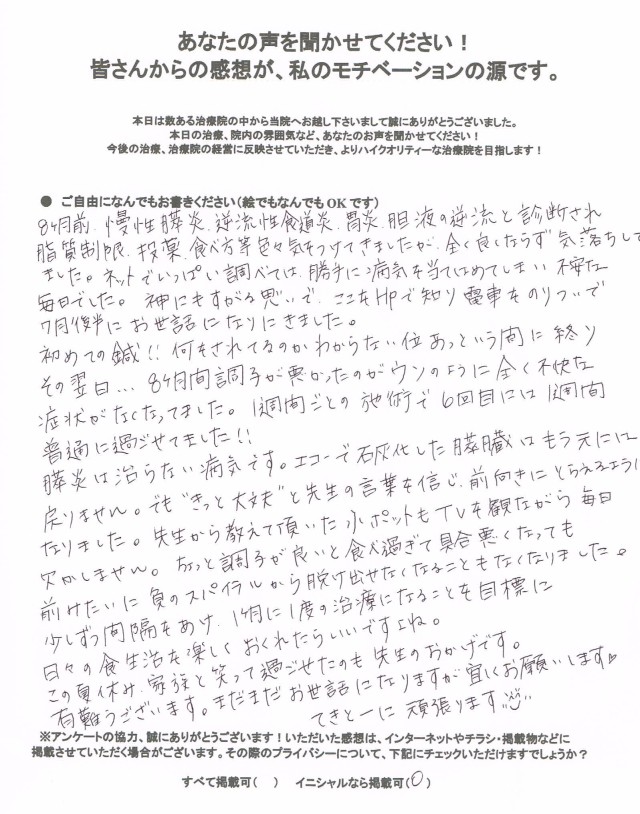 あなたの声を聞かせてください!
皆さんからの感想が、私のモチベーションの源です。
本日は数ある治療院の中から当院へお越し下さいまして誠にありがとうございました。
本日の治療、院内の雰囲気など、あなたのお声を聞かせてください!
今後の治療、治療院の経営に反映させていただき、よりハイクオリティーな治療院を目指します!
● ご自由になんでもお書きください(絵でもなんでもOKです)
8ヶ月前、慢性膵炎、逆流性食道炎、胃炎、胆液の逆流と診断され
脂質制限、投薬、食べ方等色々気をつけてきましたが、全く良くならず気落ちして
ました。ネットでいっぱい調べては、勝手に病気を当てはめてしまい不安な
毎日でした。神にもすがる思いで、ここをHPで知り電車をのりついで
7月後半にお世話になりにきました。
初めての鍼!!何をされてるのかわからない位あっという間に終り
その翌日…8ヶ月間調子が悪かったのがウソのように全く不快な
症状がなくなってました。1週間ごとの施術で6回目には1週間
普通に過ごせてました!!
膵炎は治らない病気です。エコーで石灰化した膵臓はもう元には
戻りません。でも"きっと大丈夫"と先生の言葉を信じ、前向きにとらえるように
なりました。先生から教えて頂いた小ポットもTVを観ながら毎日
欠かしません。ちょっと調子が良いと食べ過ぎて具合悪くなっても
前みたいに負のスパイラルから脱け出せなくなることもなくなりました。
少しずつ間隔をあけ、1ヶ月に1度の治療になることを目標に
日々の食生活を楽しくおくれたらいいですよね。
この夏休み、家族と笑って過ごせたのも先生のおかげです。
有難うございます。まだまだお世話になりますが宜しくお願いします♡
てきとーに頑張ります
※アンケートの協力、誠にありがとうございます!いただいた感想は、インターネットやチラシ・掲載物などに
掲載させていただく場合がございます。その際のプライバシーについて、下記にチェックいただけますでしょうか?
すべて掲載可( ) イニシャルなら掲載可(○)